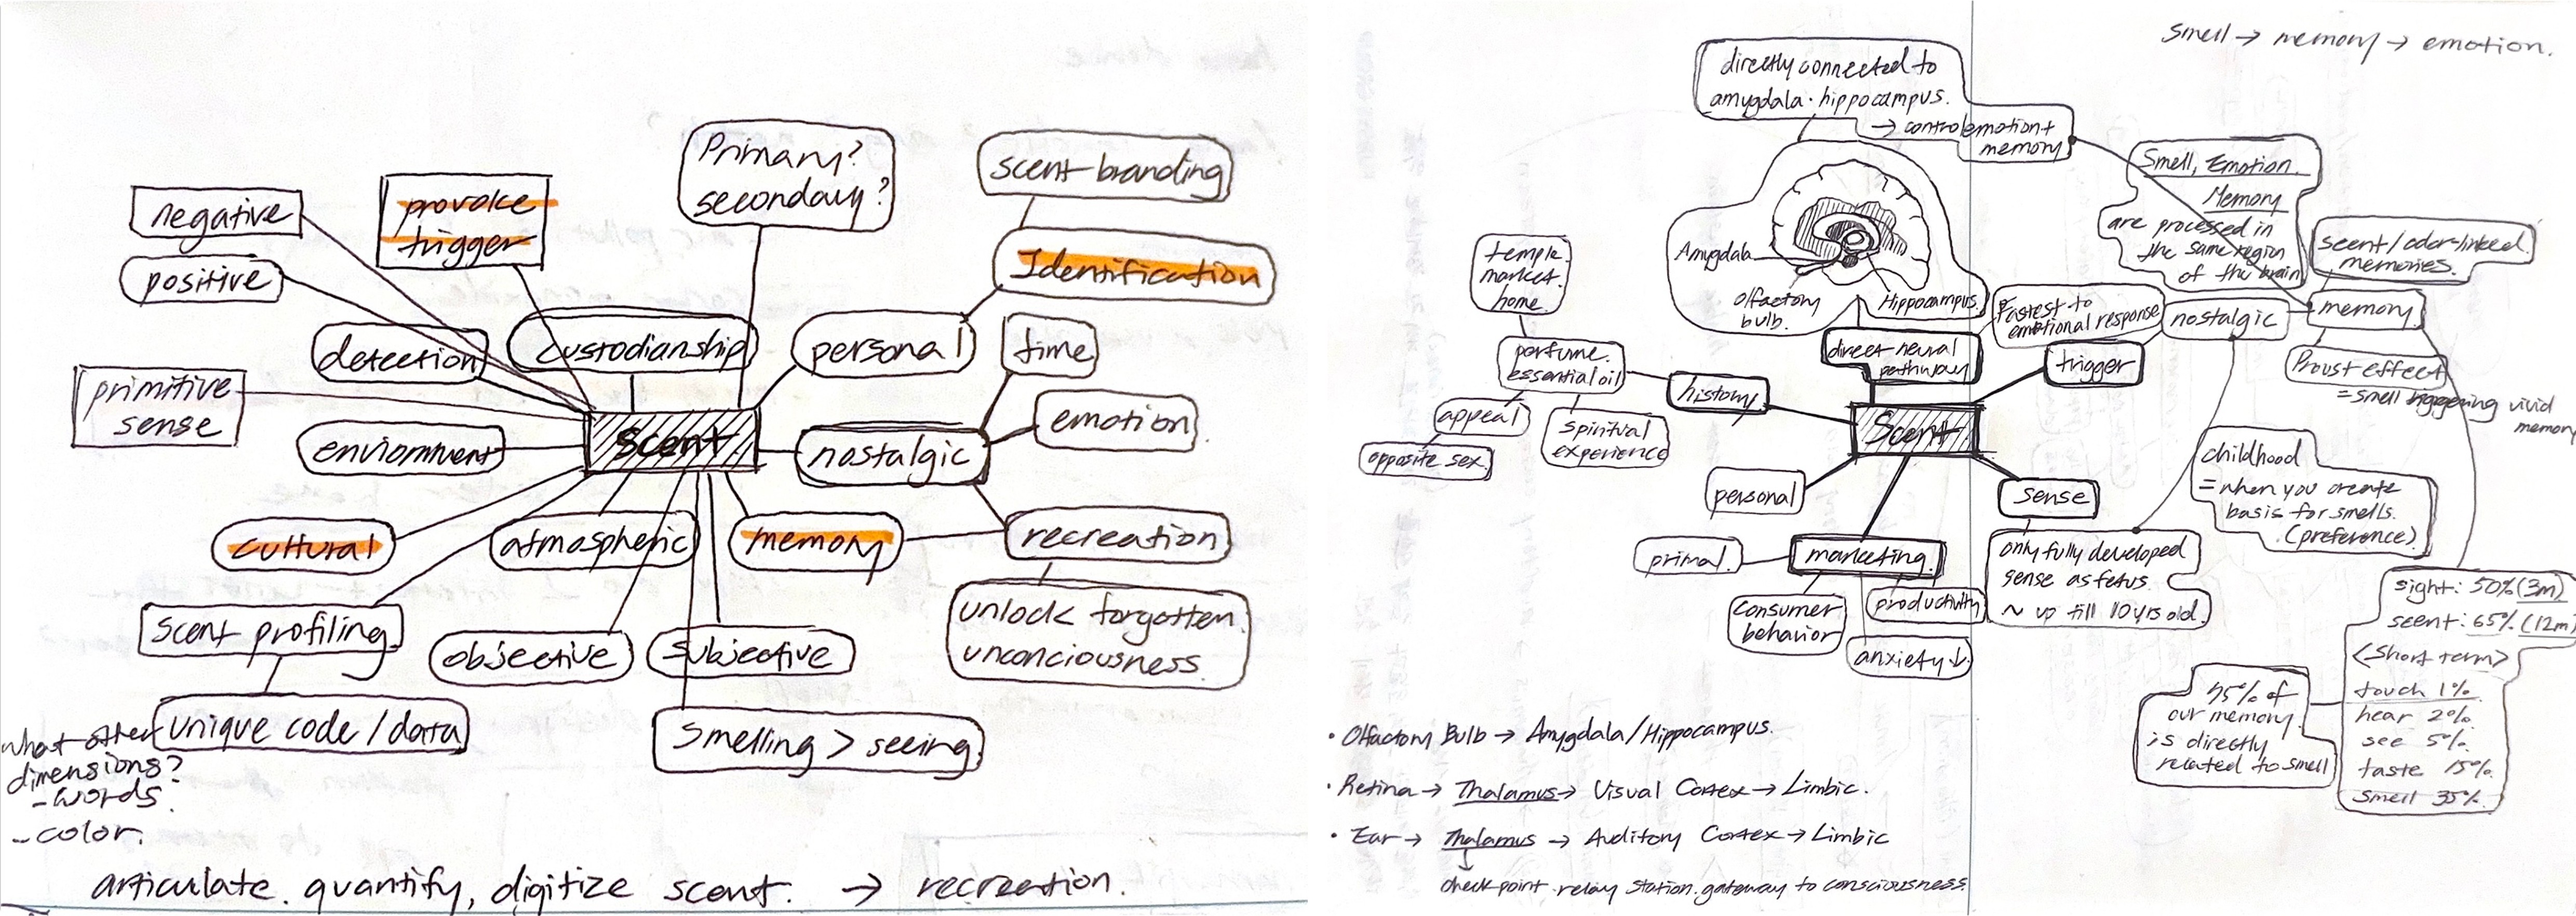 Primary?
secondary?
scent-branding
negative
provoke
trigger
positive
Identification
detection
custodianship
personal
time
primitive
sense
emotion
enviornment
scent
nostalgic
cultural
atmospheric
memory
recreation
unlock forgotten
unconciousness.
scent profiling
objective
subjective
unique code / data
Smelling > seeing
what other
dimensions?
- words
- color.
articulate. quantify, digitize scent. → recreation.
smell → memory → emotion.
directly connected to
amygdala · hippocampus.
→ control emotion +
memory
Smell, Emotion
Memory
are processed in
the same region
of the brain
scent / odor-linked
memories.
Amygdala
Olfactory
bulb.
Hippocampus
temple
market
home
Fastest to
emotional response
nostalgic
memory
direct neural
pathway
trigger
Proust effect
= smell triggering vivid
memory
perfume
essential oil
history
appeal
opposite sex
Spiritual
experience
Scent
personal
sense
childhood
= when you create
basis for smells.
(preference)
primal
marketing
consumer
behavior
productivity
anxiety ↓
only fully developed
sense as fetus
~ up till 10 yrs old.
sight: 50% (3m)
scent: 65% (12m)
<short term>
touch 1%
hear 2%
see 5%
taste 15%
smell 35%
75% of
our memory
is directly
related to smell
• Olfactory Bulb → Amygdala/Hippocampus.
• Retina → Thalamus → Visual Cortex → Limbic.
• Ear → Thalamus → Auditory Cortex → Limbic
↓
check point. relay station. gateway to consciousness.